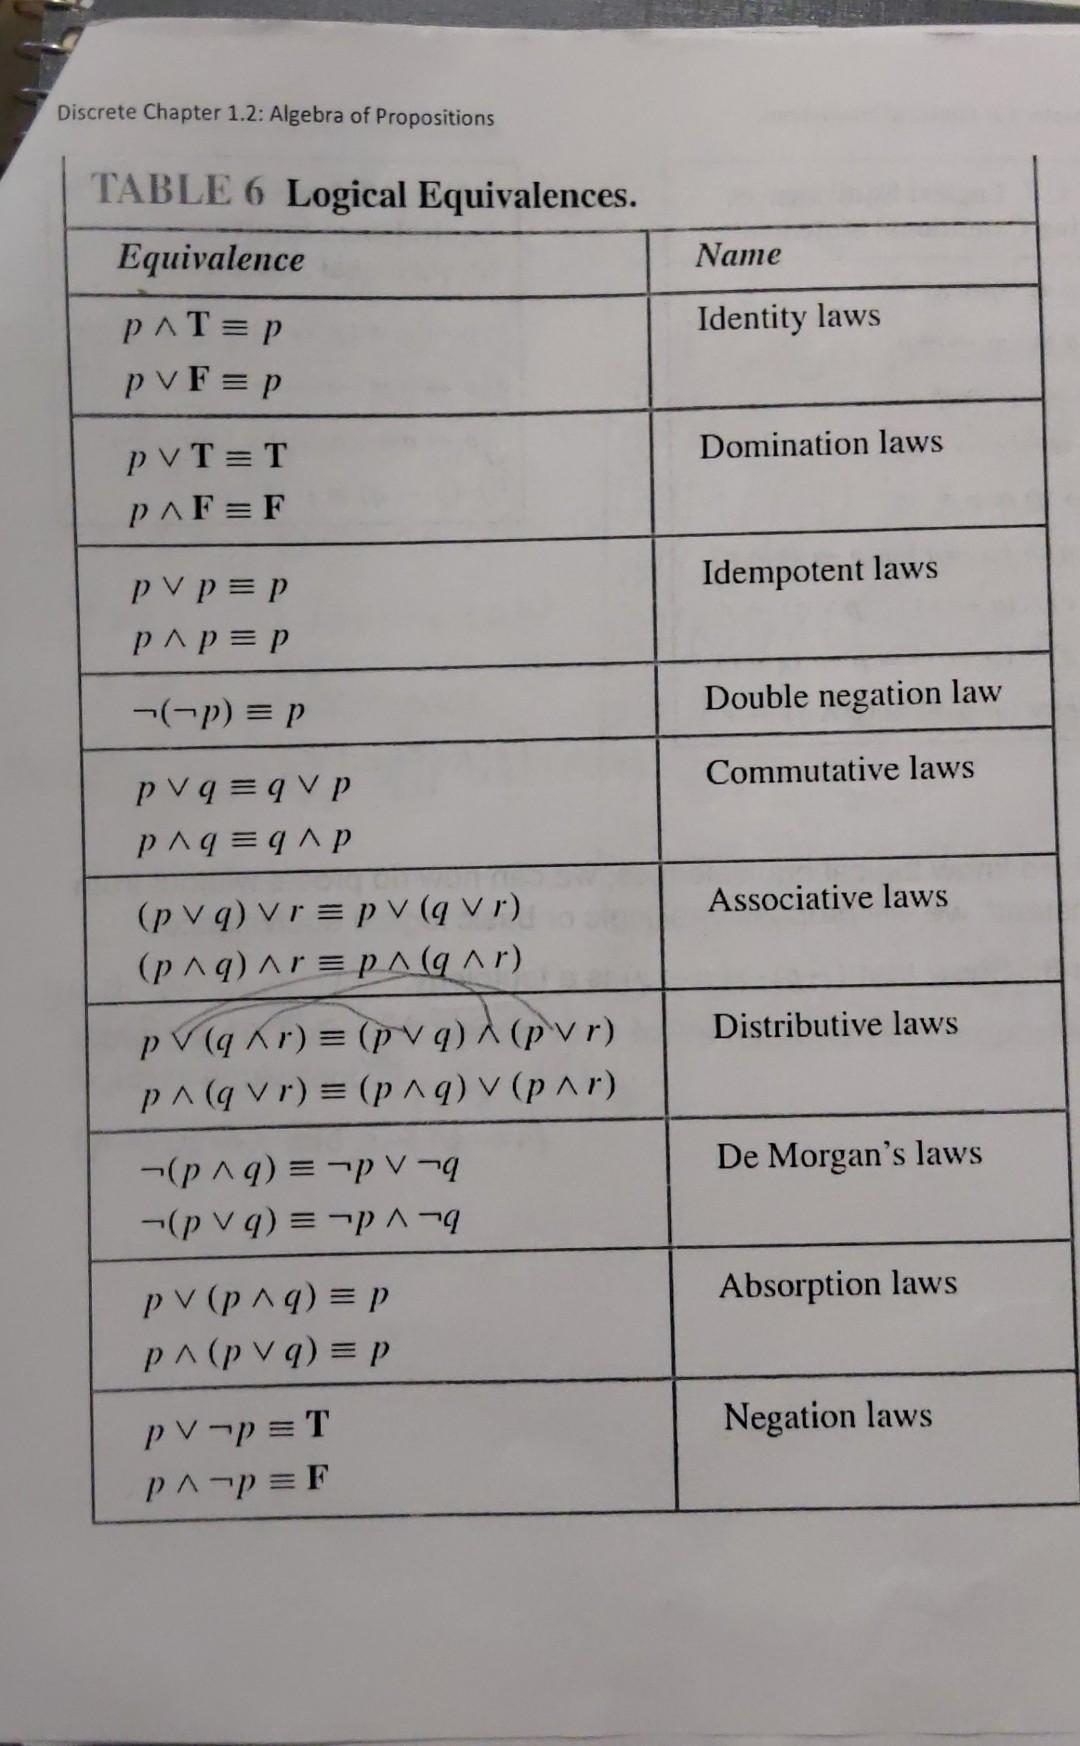 Discrete Chapter 1.2: Algebra of Propositions
TABLE 6 Logical Equivalences.
Equivalence Name
p ∧ T ≡ p Identity laws
p ∨ F ≡ p
p ∨ T ≡ T Domination laws
p ∧ F ≡ F
p ∨ p ≡ p Idempotent laws
p ∧ p ≡ p
¬(¬p) ≡ p Double negation law
p ∨ q ≡ q ∨ p Commutative laws
p ∧ q ≡ q ∧ p
(p ∨ q) ∨ r ≡ p ∨ (q ∨ r) Associative laws
(p ∧ q) ∧ r ≡ p ∧ (q ∧ r)
p ∨ (q ∧ r) ≡ (p ∨ q) ∧ (p ∨ r) Distributive laws
p ∧ (q ∨ r) ≡ (p ∧ q) ∨ (p ∧ r)
¬(p ∧ q) ≡ ¬p ∨ ¬q De Morgan's laws
¬(p ∨ q) ≡ ¬p ∧ ¬q
p ∨ (p ∧ q) ≡ p Absorption laws
p ∧ (p ∨ q) ≡ p
p ∨ ¬p ≡ T Negation laws
p ∧ ¬p ≡ F